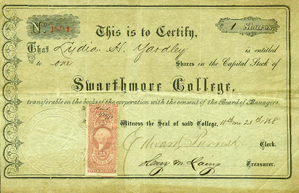 N.
1 Shares
This is to Certify,
That Lydia H. Yardley is entitled
to one Shares in the Capital Stock of
Swarthmore College,
transferable on the books of the corporation with the consent of the Board of Managers.
Witness the Seal of said College,
Edward Clerk.
Treasurer.